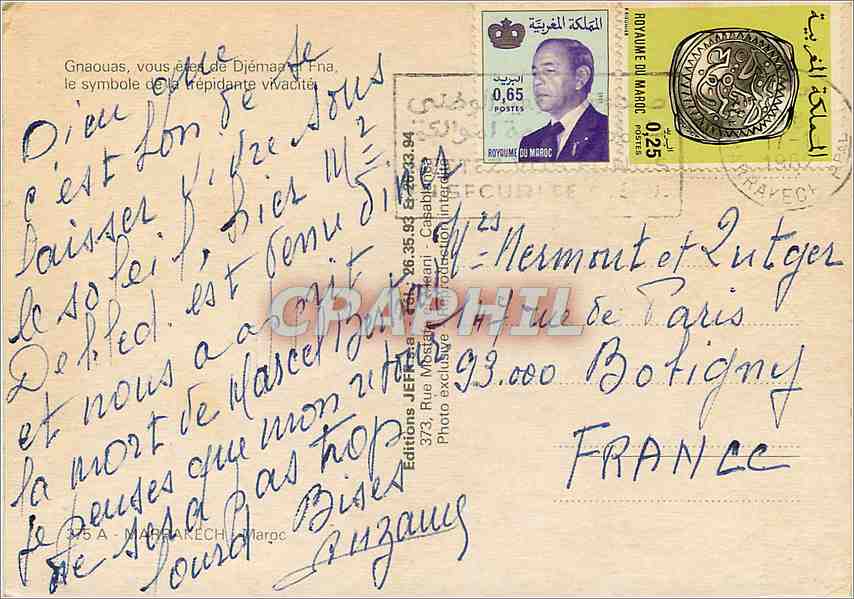 Gnaouas, vous êtes de Djémaa el Fna,
le symbole de la trépidante vivacité.
Dieu que
c'est bon de se
laisser vivre sous
le soleil, hier Mr
est venu dîner
et nous a appris
la mort de Marcel
je penses que mon retour
ne sera pas trop
lourd. Bises
375 A - MARRAKECH - Maroc
Editions JEFF 26.35.93 & 26.33.94
373, Rue Mostafa - Casablanca
Photo exclusive Reproduction interdite
CPAPHIL
المملكة المغربية
البريد
0,65
POSTES
ROYAUME DU MAROC
المملكة المغربية
ROYAUME DU MAROC
البريد
0,25
POSTES
Mrs Mermout et Lutger
47 rue de Paris
93.000 Bobigny
FRANCE